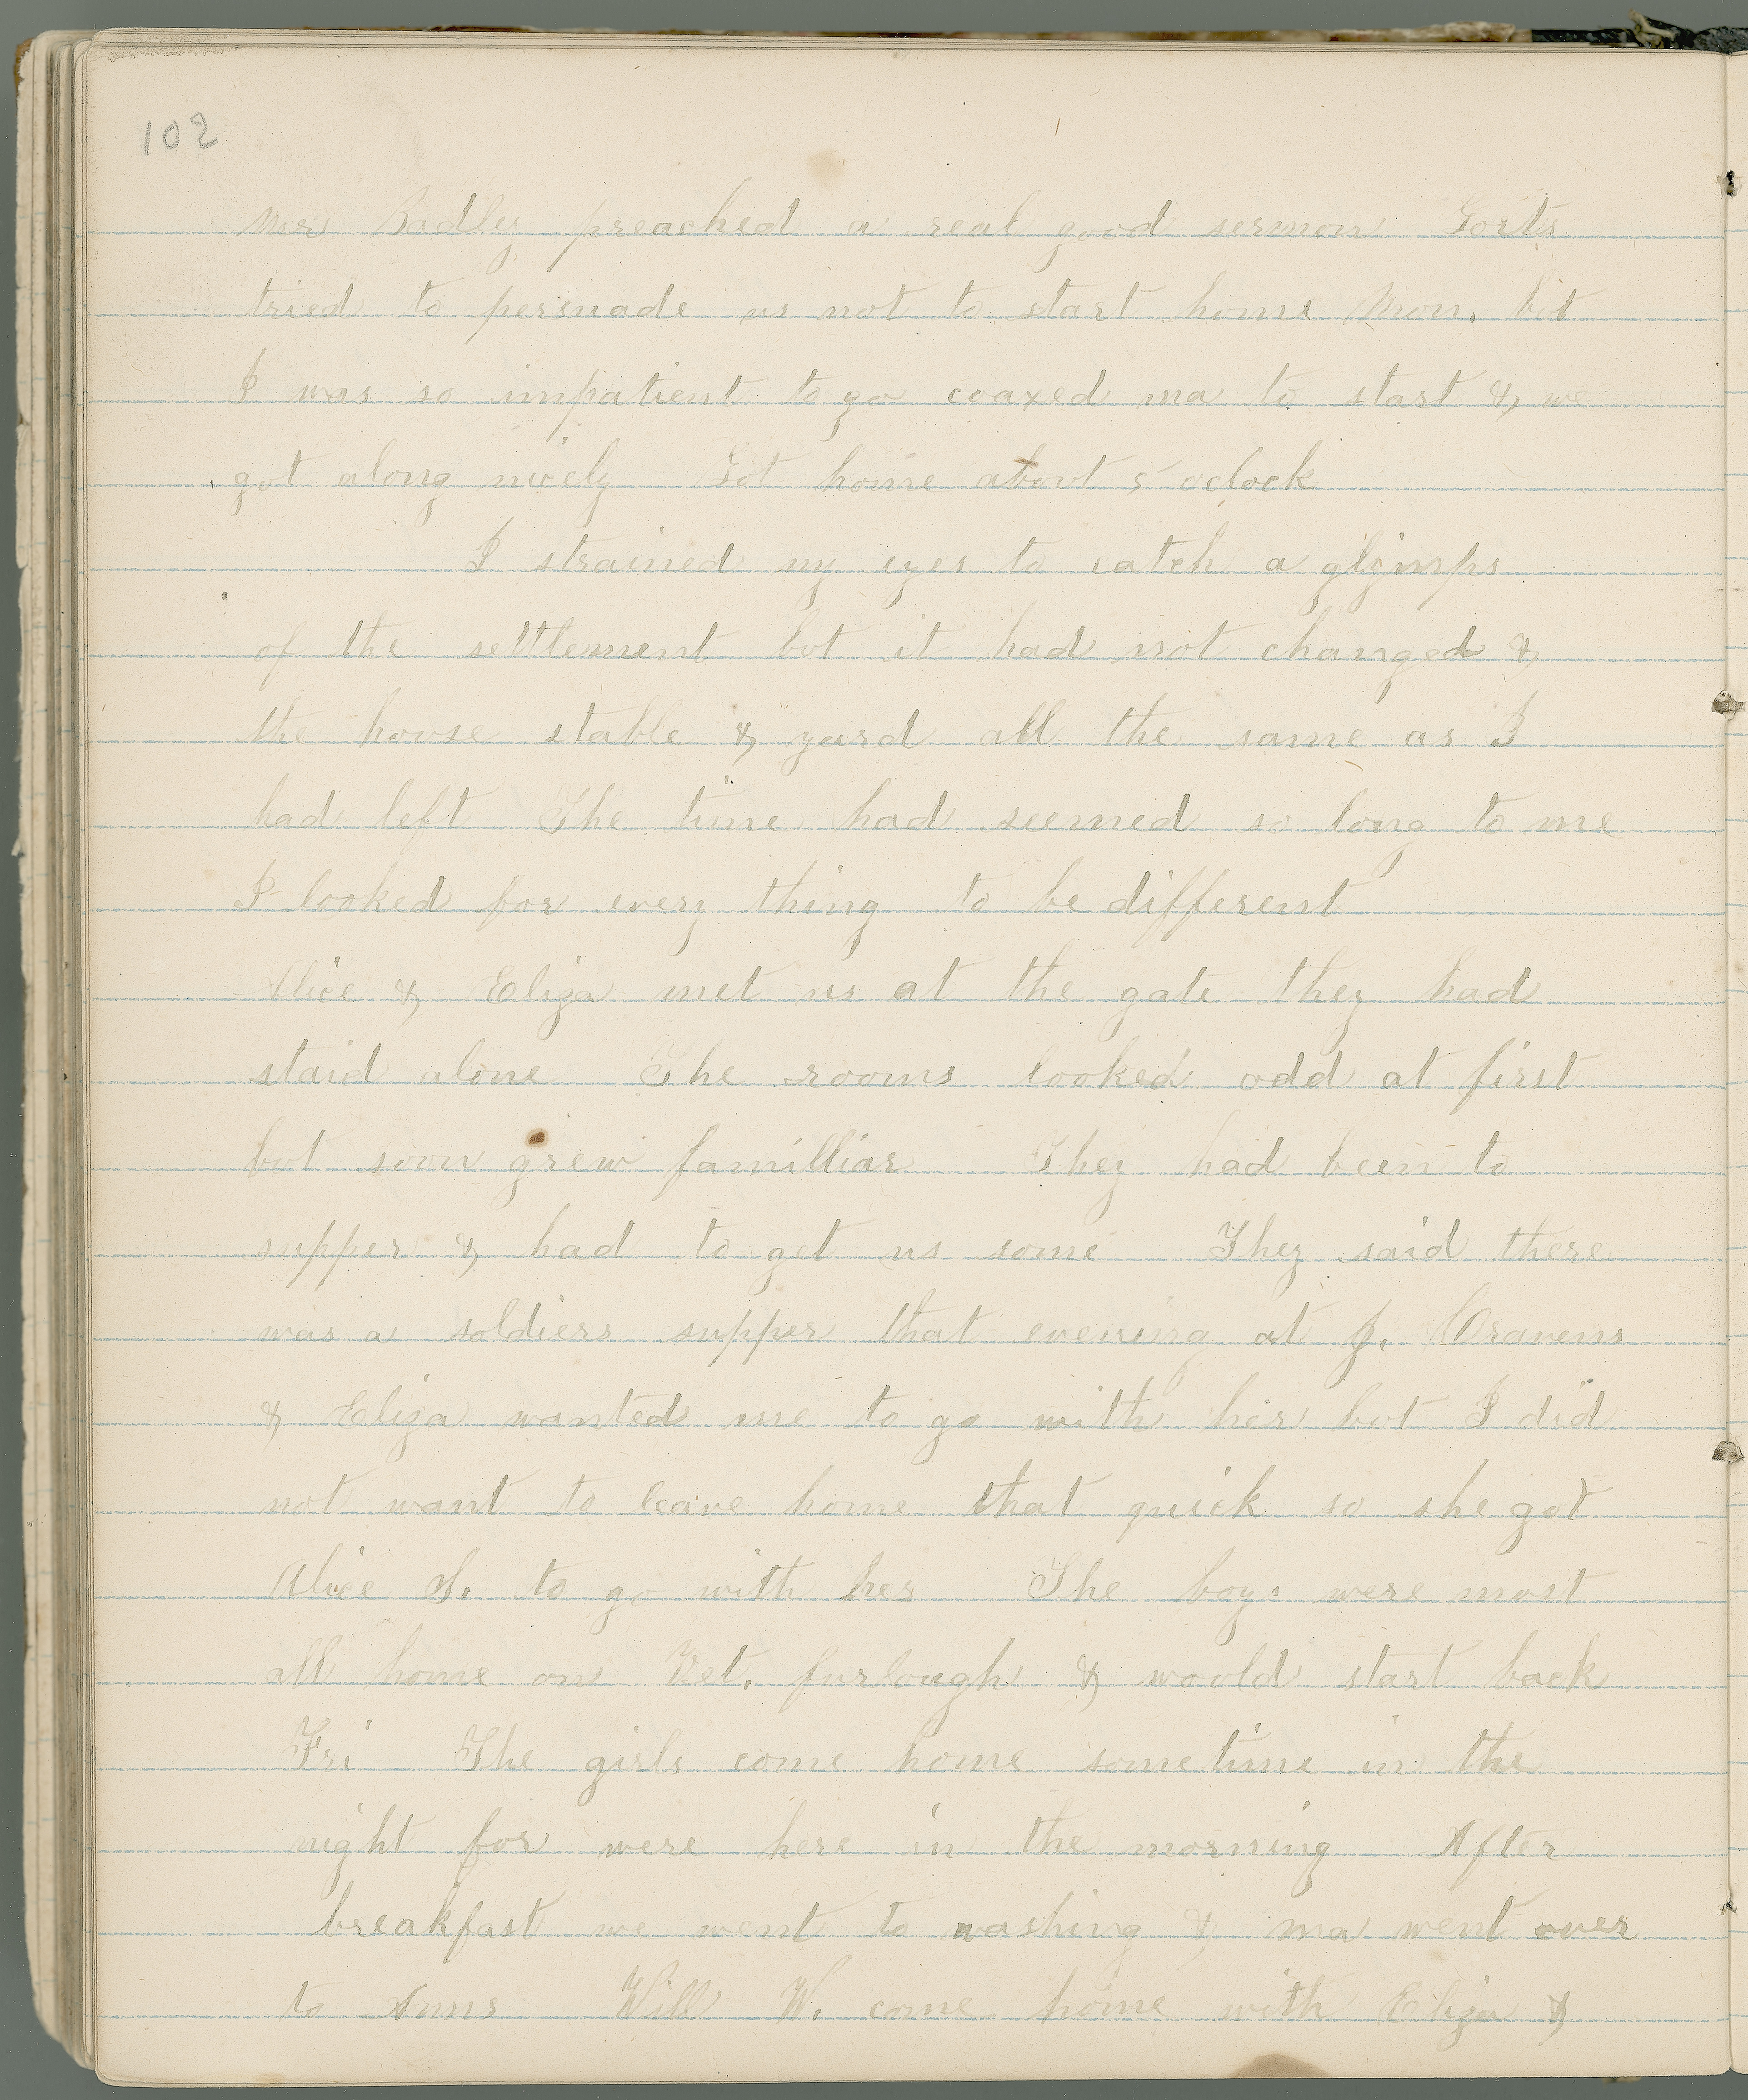 102
Mrs Badley preached a real good sermon Forts
tried to persuade us not to start home Mon. bit
I was so impatient to go coaxed ma to start & we
got along nicely Got home about 5 oclock
I strained my eyes to catch a glimps
of the settlement but it had not changed &
the house stable & yard all the same as I
had left The time had seemed so long to me
I looked for every thing to be different
Alice & Eliza met us at the gate they had
staid alone The rooms looked odd at first
but soon grew familliar They had been to
supper & had to get us some They said there
was a soldiers supper that evening at J. Cravens
& Eliza wanted me to go with her but I did
not want to leave home that quick so she got
Alice S. to go with her The boys were most
all home on Vet. furlough & woold start back
Fri The girls come home sometime in the
night for were here in the morning After
breakfast we went to washing & ma went over
to Anns Will W. come home with Eliza &